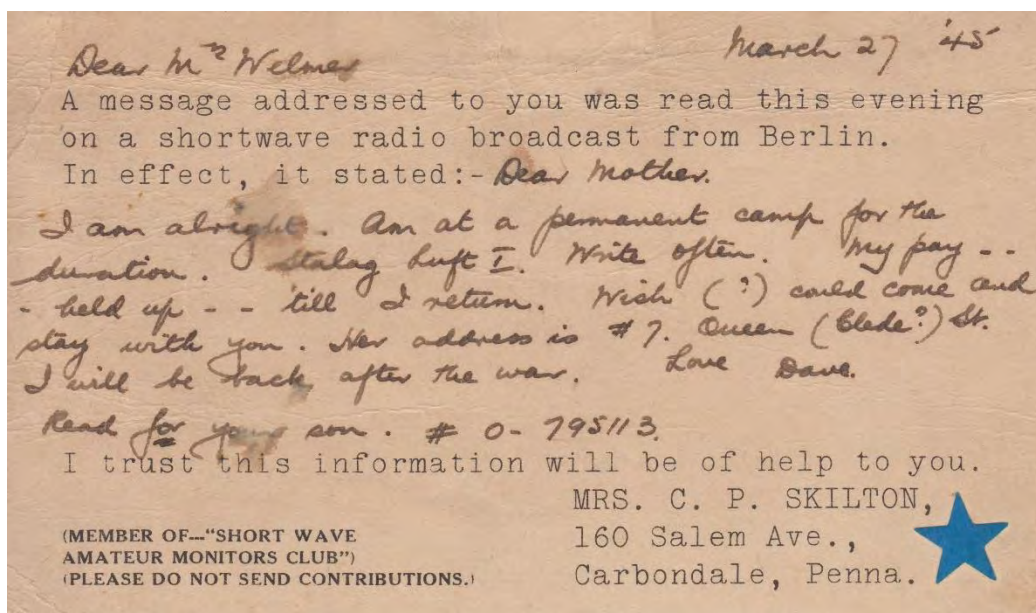 March 27 '45
Dear Mrs Welmer
A message addressed to you was read this evening
on a shortwave radio broadcast from Berlin.
In effect, it stated:- Dear Mother.
I am alright. Am at a permanent camp for the
duration. Stalag Luft I. Write often. My pay - -
- held up - - till I return. Wish (?) could come and
stay with you. Her address is #7. Queen (Clede?) St.
I will be back after the war. Love Dave.
Read for your son. # 0-795113.
I trust this information will be of help to you.
MRS. C. P. SKILTON,
160 Salem Ave.,
Carbondale, Penna.
(MEMBER OF---"SHORT WAVE
AMATEUR MONITORS CLUB")
(PLEASE DO NOT SEND CONTRIBUTIONS.)